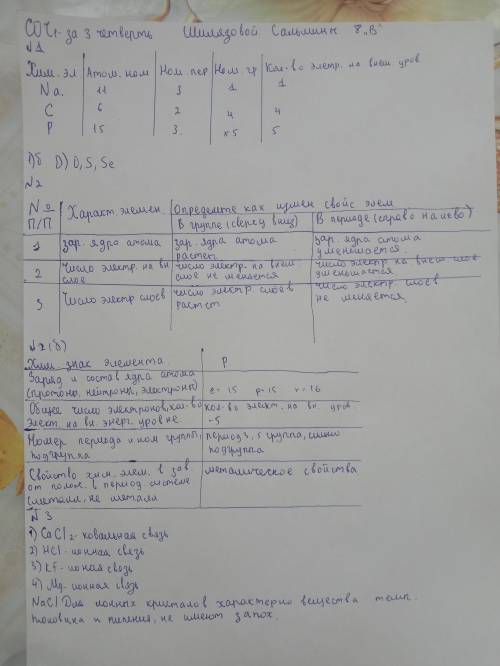 СОЧ-за 3 четверть Шилязовой Сальмины 8 "В"
№1
Хим. эл Атом. ном Ном. пер Ном. гр Кол-во электр. на внеш. уров
Na. 11 3 1 1
C 6 2 4 4
P 15 3. 5 5
1)б D) O, S, Se
№2
№ Характ. элемен. Определите как измен свойс элем
п/п В группе (сверху вниз) В периоде (справо налево)
1 зар. ядра атома зар. ядра атома растет зар. ядра атома уменьшается
2 Число электр. на вн слое число электр. на внеш. слое не меняется число электр на внеш. слое уменьшается
3 Число электр слоев число электр. слоев растет число электр. слоев не меняется
№2 (б)
Хим. знак элемента. P
Заряд и состав ядра атома
(протоны, нейтроны, электроны) e-15 p-15 n-16
Общее число электронов, кол-во кол-во элект. на вн. уров.
элект на вн. энерг. уровне -5
Номер периода и ном группы, период 3, 5 группа,
подгруппа подгруппа
Свойство хим. элем. в зав металическое свойства
от полож. в период системе
(металл, не металл
№3
1) CaCl2- ковальная связь
2) HCl - ионная связь
3) KF - ионая свозь
4) Mg - ионная связь
NaCl Для ионных кристалов характерно вещества темп.
и кипения, не имеют запох.